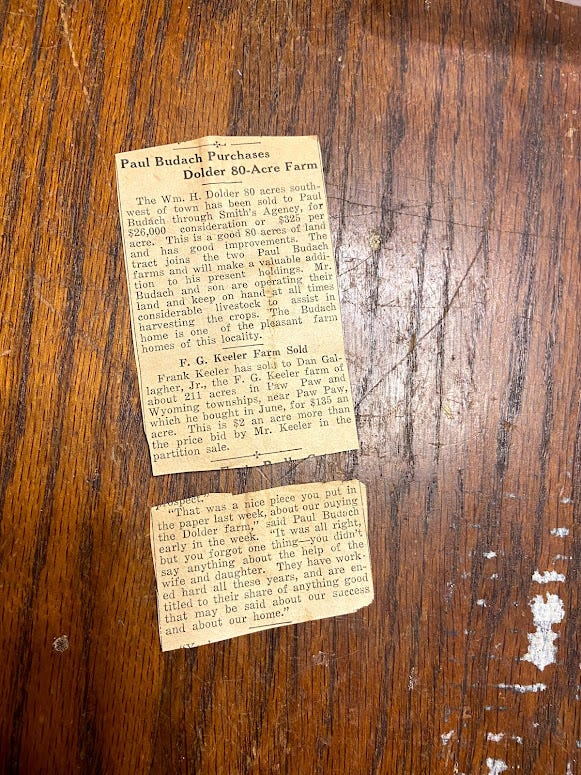 Paul Budach Purchases
Dolder 80-Acre Farm
The Wm. H. Dolder 80 acres south-
west of town has been sold to Paul
Budach through Smith's Agency, for
$26,000 consideration or $325 per
acre. This is a good 80 acres of land
and has good improvements. The
tract joins the two Paul Budach
farms and will make a valuable addi-
tion to his present holdings. Mr.
Budach and son are operating their
land and keep on hand at all times
considerable livestock to assist in
harvesting the crops. The Budach
home is one of the pleasant farm
homes of this locality.
F. G. Keeler Farm Sold
Frank Keeler has sold to Dan Gal-
lagher, Jr., the F. G. Keeler farm of
about 211 acres in Paw Paw and
Wyoming townships, near Paw Paw,
which he bought in June, for $135 an
acre. This is $2 an acre more than
the price bid by Mr. Keeler in the
partition sale.
"That was a nice piece you put in
the paper last week, about our buying
the Dolder farm," said Paul Budach
early in the week. "It was all right,
but you forgot one thing—you didn't
say anything about the help of the
wife and daughter. They have work-
ed hard all these years, and are en-
titled to their share of anything good
that may be said about our success
and about our home."